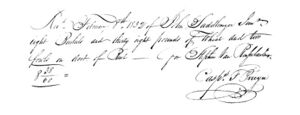 Rec'd Februy 9th 1832 of John Saddlemyer Junr
eight Bushels and thirty eight pounds of Wheat and two
fowls on acct of Rent — for Stephen Van Rensselaer
8 38/60
Casps F Pruyn